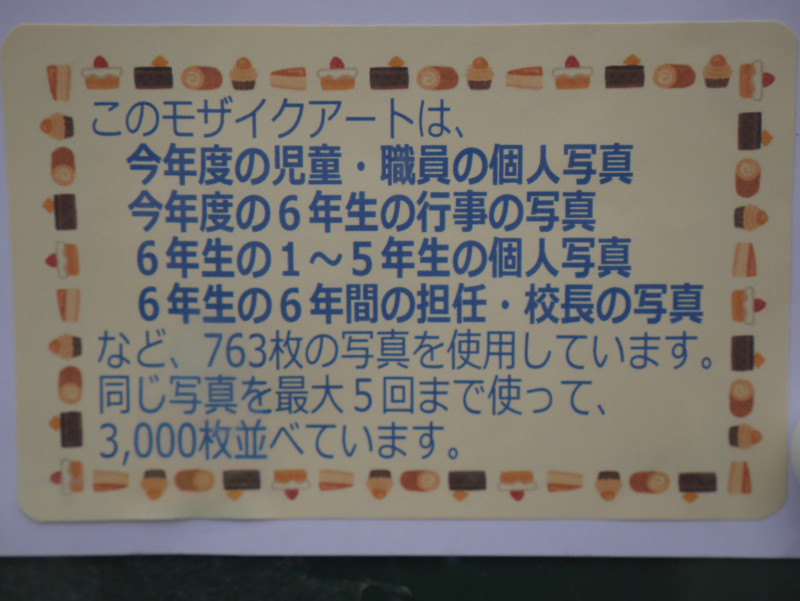 このモザイクアートは、
今年度の児童・職員の個人写真
今年度の６年生の行事の写真
６年生の１～５年生の個人写真
６年生の６年間の担任・校長の写真
など、763枚の写真を使用しています。
同じ写真を最大５回まで使って、
3,000枚並べています。